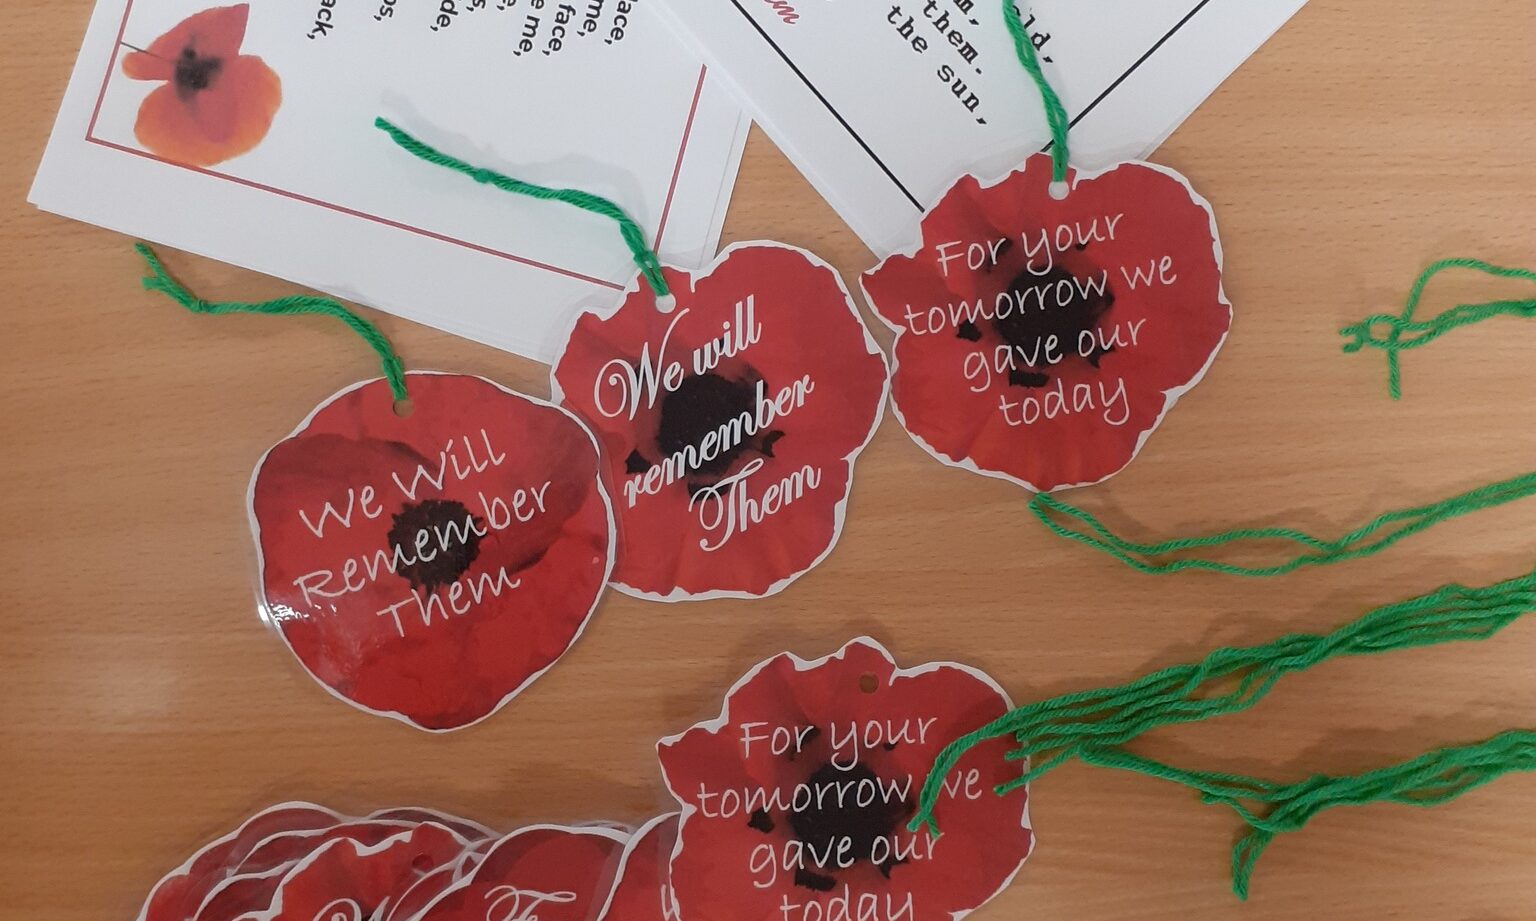 ack,
os,
de,
s,
e,
e me,
face,
me,
lace,
em
m,
them.
the sun,
ld,
We Will
Remember
Them
We will
remember
Them
For your
tomorrow we
gave our
today
For your
tomorrow we
gave our
today